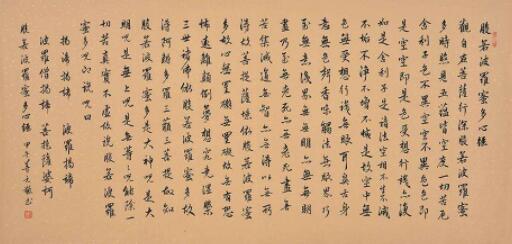 般若波羅蜜多心經
觀自在菩薩行深般若波羅蜜
多時照見五蘊皆空度一切苦厄
舍利子色不異空空不異色色即
是空空即是色受想行識亦復
如是舍利子是諸法空相不生不滅
不垢不淨不增不減是故空中無
色無受想行識無眼耳鼻舌身
意無色聲香味觸法無眼界乃
至無意識界無無明亦無無明
盡乃至無老死亦無老死盡無
苦集滅道無智亦無得以無所
得故菩提薩埵依般若波羅蜜
多故心無罣礙無罣礙故無有恐
怖遠離顛倒夢想究竟涅槃
三世諸佛依般若波羅蜜多故
得阿耨多羅三藐三菩提故知
般若波羅蜜多是大神咒是大
明咒是無上咒是無等等咒能除一
切苦真實不虛故說般若波羅
蜜多咒即說咒曰
揭諦揭諦 波羅揭諦
波羅僧揭諦 菩提薩婆訶
般若波羅蜜多心經 甲午